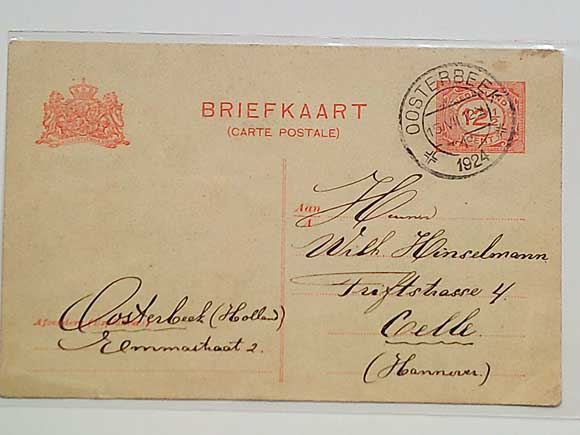 BRIEFKAART
(CARTE POSTALE)
OOSTERBEEK
1924
12½
CENT
Aan
A
Herrn
Wilh. Hinselmann
Triftstrasse 4.
Celle.
(Hannover.)
Oosterbeek (Holland)
Emmastraat 2.